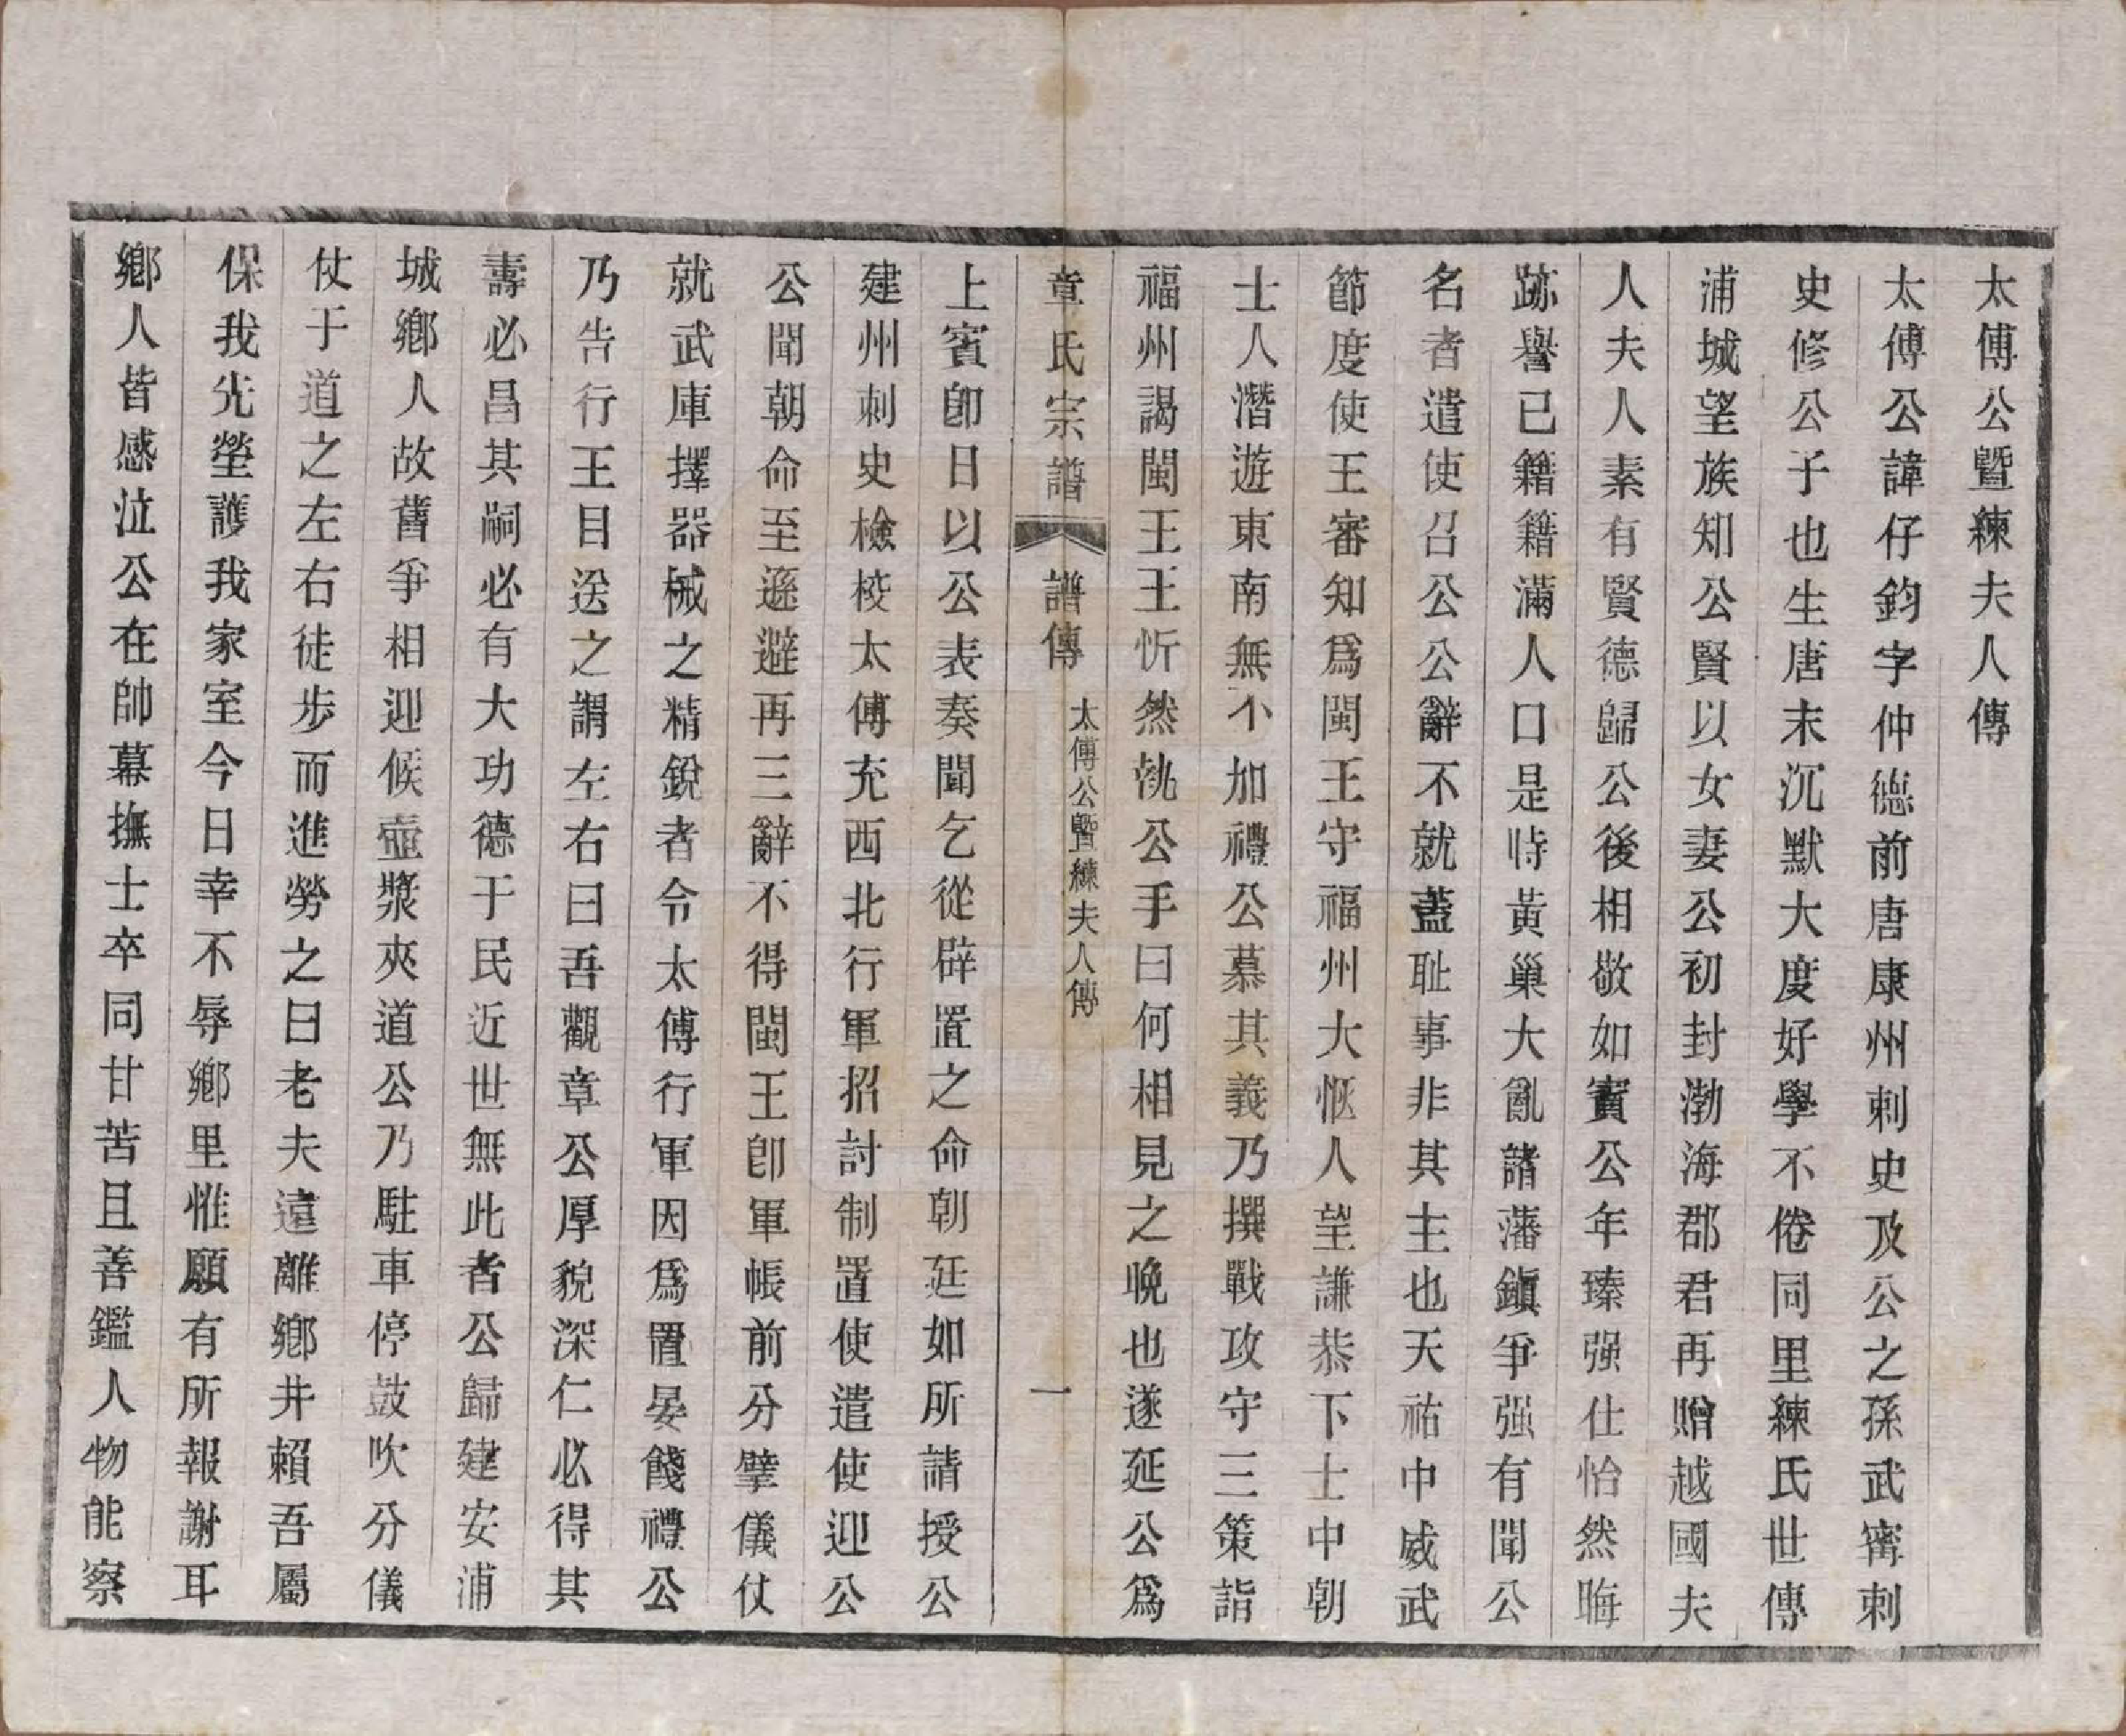 太傅公暨練夫人傳
太傅公諱仔鈞字仲德前唐康州刺史及公之孫武甯刺
史修公子也生唐末沉默大度好學不倦同里練氏世傳
浦城望族知公賢以女妻公初封渤海郡君再贈越國夫
人夫人素有賢德歸公後相敬如賓公年臻强仕怡然晦
跡譽已籍籍滿人口是時黃巢大亂諸藩鎭爭强有聞公
名者遣使召公公辭不就蓋耻事非其主也天祐中威武
節度使王審知爲閩王守福州大恢人望謙恭下士中朝
士人潛遊東南無不加禮公慕其義乃撰戰攻守三策詣
福州謁閩王王忻然執公手曰何相見之晩也遂延公爲
章氏宗譜
譜傳
太傅公暨練夫人傳
一
上賓卽日以公表奏聞乞從辟置之命朝廷如所請授公
建州刺史檢校太傅充西北行軍招討制置使遣使迎公
公聞朝命至遜避再三辭不得閩王卽軍帳前分擘儀仗
就武庫擇器械之精銳者令太傅行軍因爲置宴餞禮公
乃告行王目送之謂左右曰吾觀章公厚貌深仁必得其
壽必昌其嗣必有大功德于民近世無此者公歸建安浦
城鄉人故舊爭相迎候壺漿夾道公乃駐車停鼓吹分儀
仗于道之左右徒步而進勞之曰老夫遠離鄉井賴吾屬
保我先塋護我家室今日幸不辱鄉里惟願有所報謝耳
鄉人皆感泣公在帥幕撫士卒同甘苦且善鑑人物能察